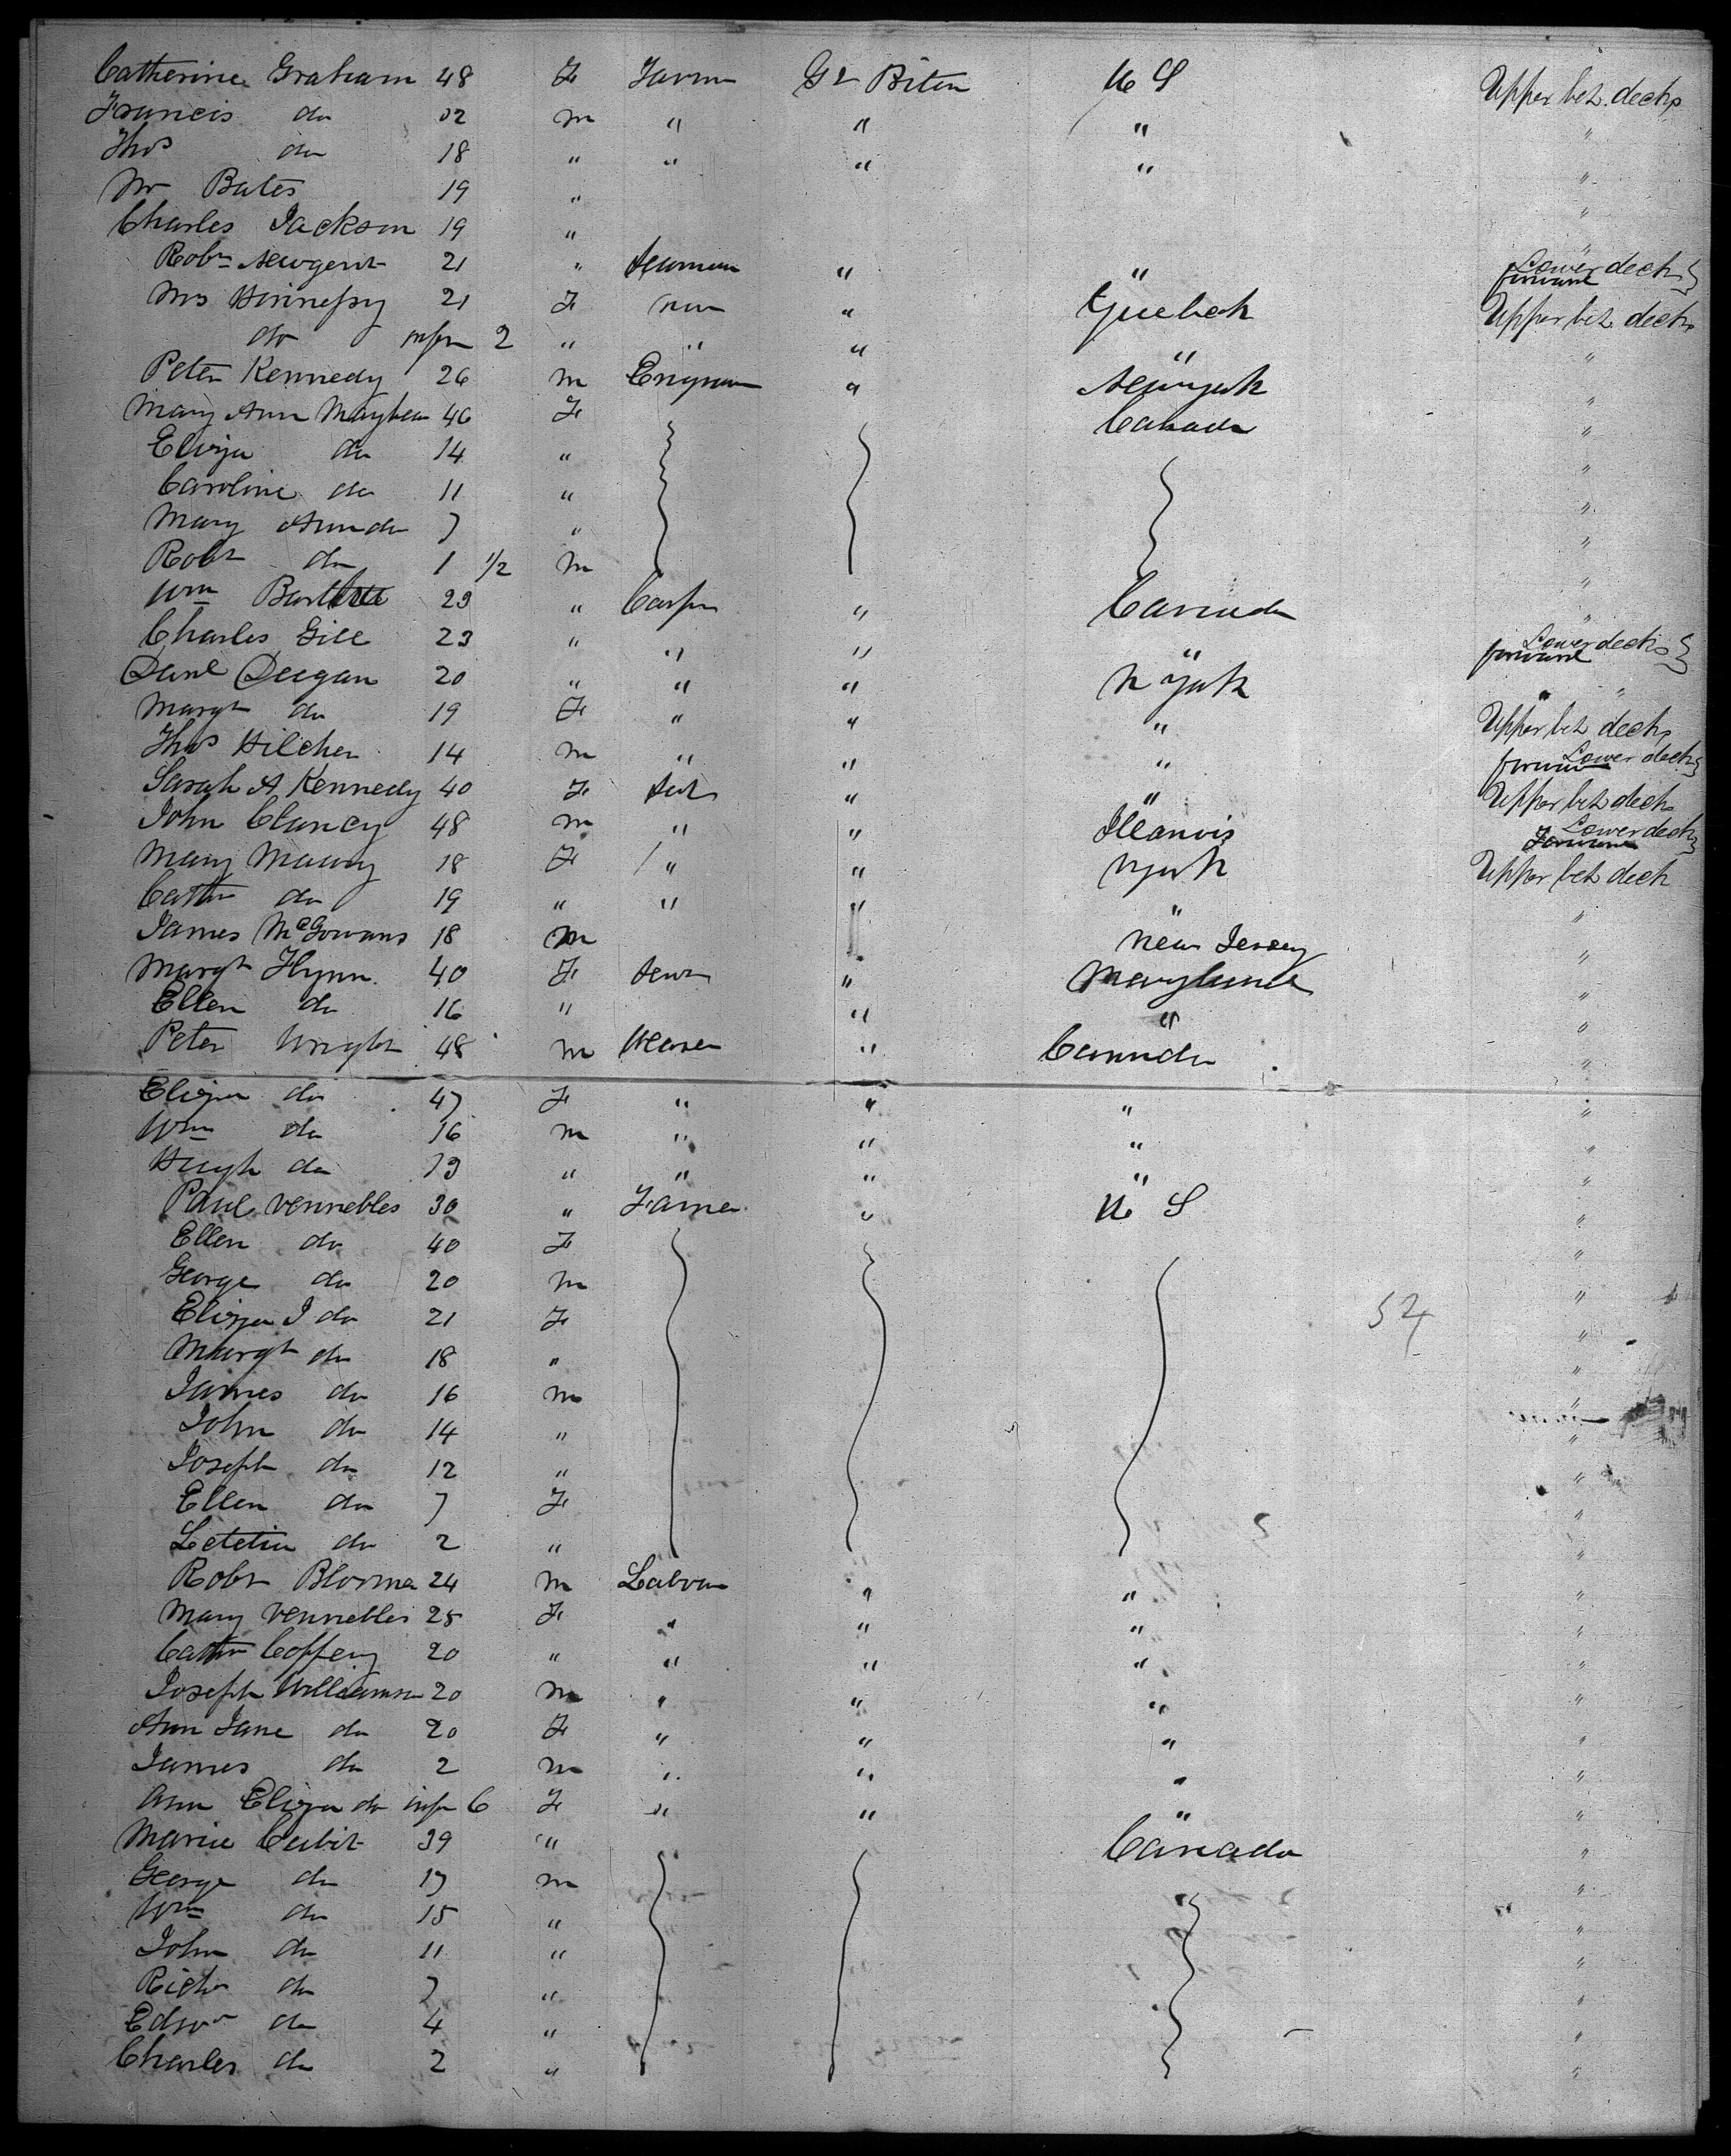 Catherine Graham 48 F Farm Gt Briten U S Upper bet. decks
Francis do 22 m " " " "
Thos do 18 " " " " "
Wm Bates 19 " "
Charles Jackson 19 " "
Robt Newgent 21 " " " Lower decks forward
Mrs Hennessy 21 F " Quebek Upper bet decks
do infn 2 " " " " "
Peter Kennedy 26 m " Newyork "
Mary Ann Mayhew 46 F Canada "
Eliza do 14 " "
Caroline do 11 " "
Mary Ann do 7 " "
Robt do 1 1/2 m "
Wm Bartlett 23 " Carpn " Canada "
Charles Gill 23 " " " " Lower decks forward
Danl Deegan 20 " " " N York "
Margt do 19 F " " " Upper bet decks
Thos Hilchen 14 m " " " Lower decks forward
Sarah A Kennedy 40 F " " Upper bet decks
John Clancy 48 m " " Illanois Lower deck forward
Mary 18 F " " N York Upper bet deck
Cathn do 19 " " " " "
James McGowans 18 m " New Jersey "
Margt Flynn 40 F " Maryland "
Ellen do 16 " " " "
Peter Wright 48 m Weaver " Canada "
Eliza do 47 F " " " "
Wm do 16 m " " " "
Hugh do 13 " " " " "
Paul Vennebles 30 " Farmer " U S "
Ellen do 40 F "
George do 20 m "
Eliza J do 21 F 54 "
Margt do 18 " "
James do 16 m "
John do 14 " "
Joseph do 12 " "
Ellen do 7 F "
Letetia do 2 " "
Robt 24 m Labour " " "
Mary Vennebles 25 F " " " "
Cathn Coffery 20 " " " " "
Joseph Williamson 20 m " " " "
Ann Jane do 20 F " " " "
James do 2 m " " " "
Ann Eliza do infn 6 F " " " "
Maria Cubit 39 " Canada "
George do 17 m "
Wm do 15 " "
John do 11 " "
Richd do 7 " "
Edwd do 4 " "
Charles do 2 " "